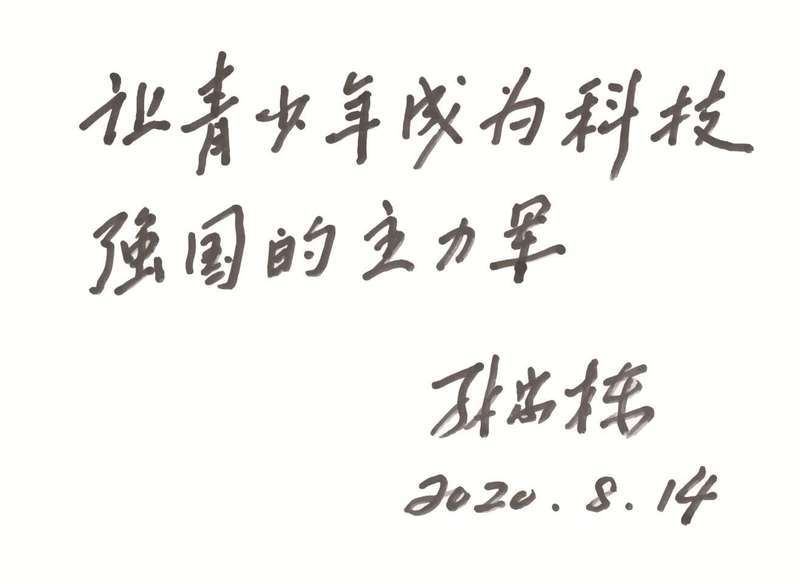 让青少年成为科技
强国的主力军
张宏栋
2020.8.14